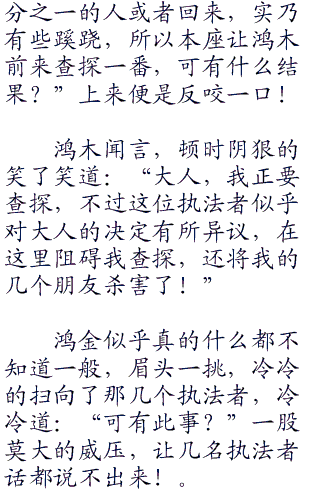 分之一的人或者回来，实乃
有些蹊跷，所以本座让鸿木
前来查探一番，可有什么结
果？”上来便是反咬一口！
鸿木闻言，顿时阴狠的
笑了笑道：“大人，我正要
查探，不过这位执法者似乎
对大人的决定有所异议，在
这里阻碍我查探，还将我的
几个朋友杀害了！”
鸿金似乎真的什么都不
知道一般，眉头一挑，冷冷
的扫向了那几个执法者，冷
冷道：“可有此事？”一股
莫大的威压，让几名执法者
话都说不出来！。